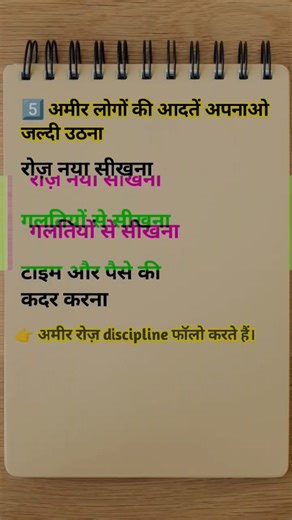 5️⃣ अमीर लोगों की आदतें अपनाओ
जल्दी उठना
रोज़ नया सीखना
रोज़ नया सीखना
गलतियों से सीखना
गलतियों से सीखना
टाइम और पैसे की
कदर करना
👉 अमीर रोज़ discipline फॉलो करते हैं।